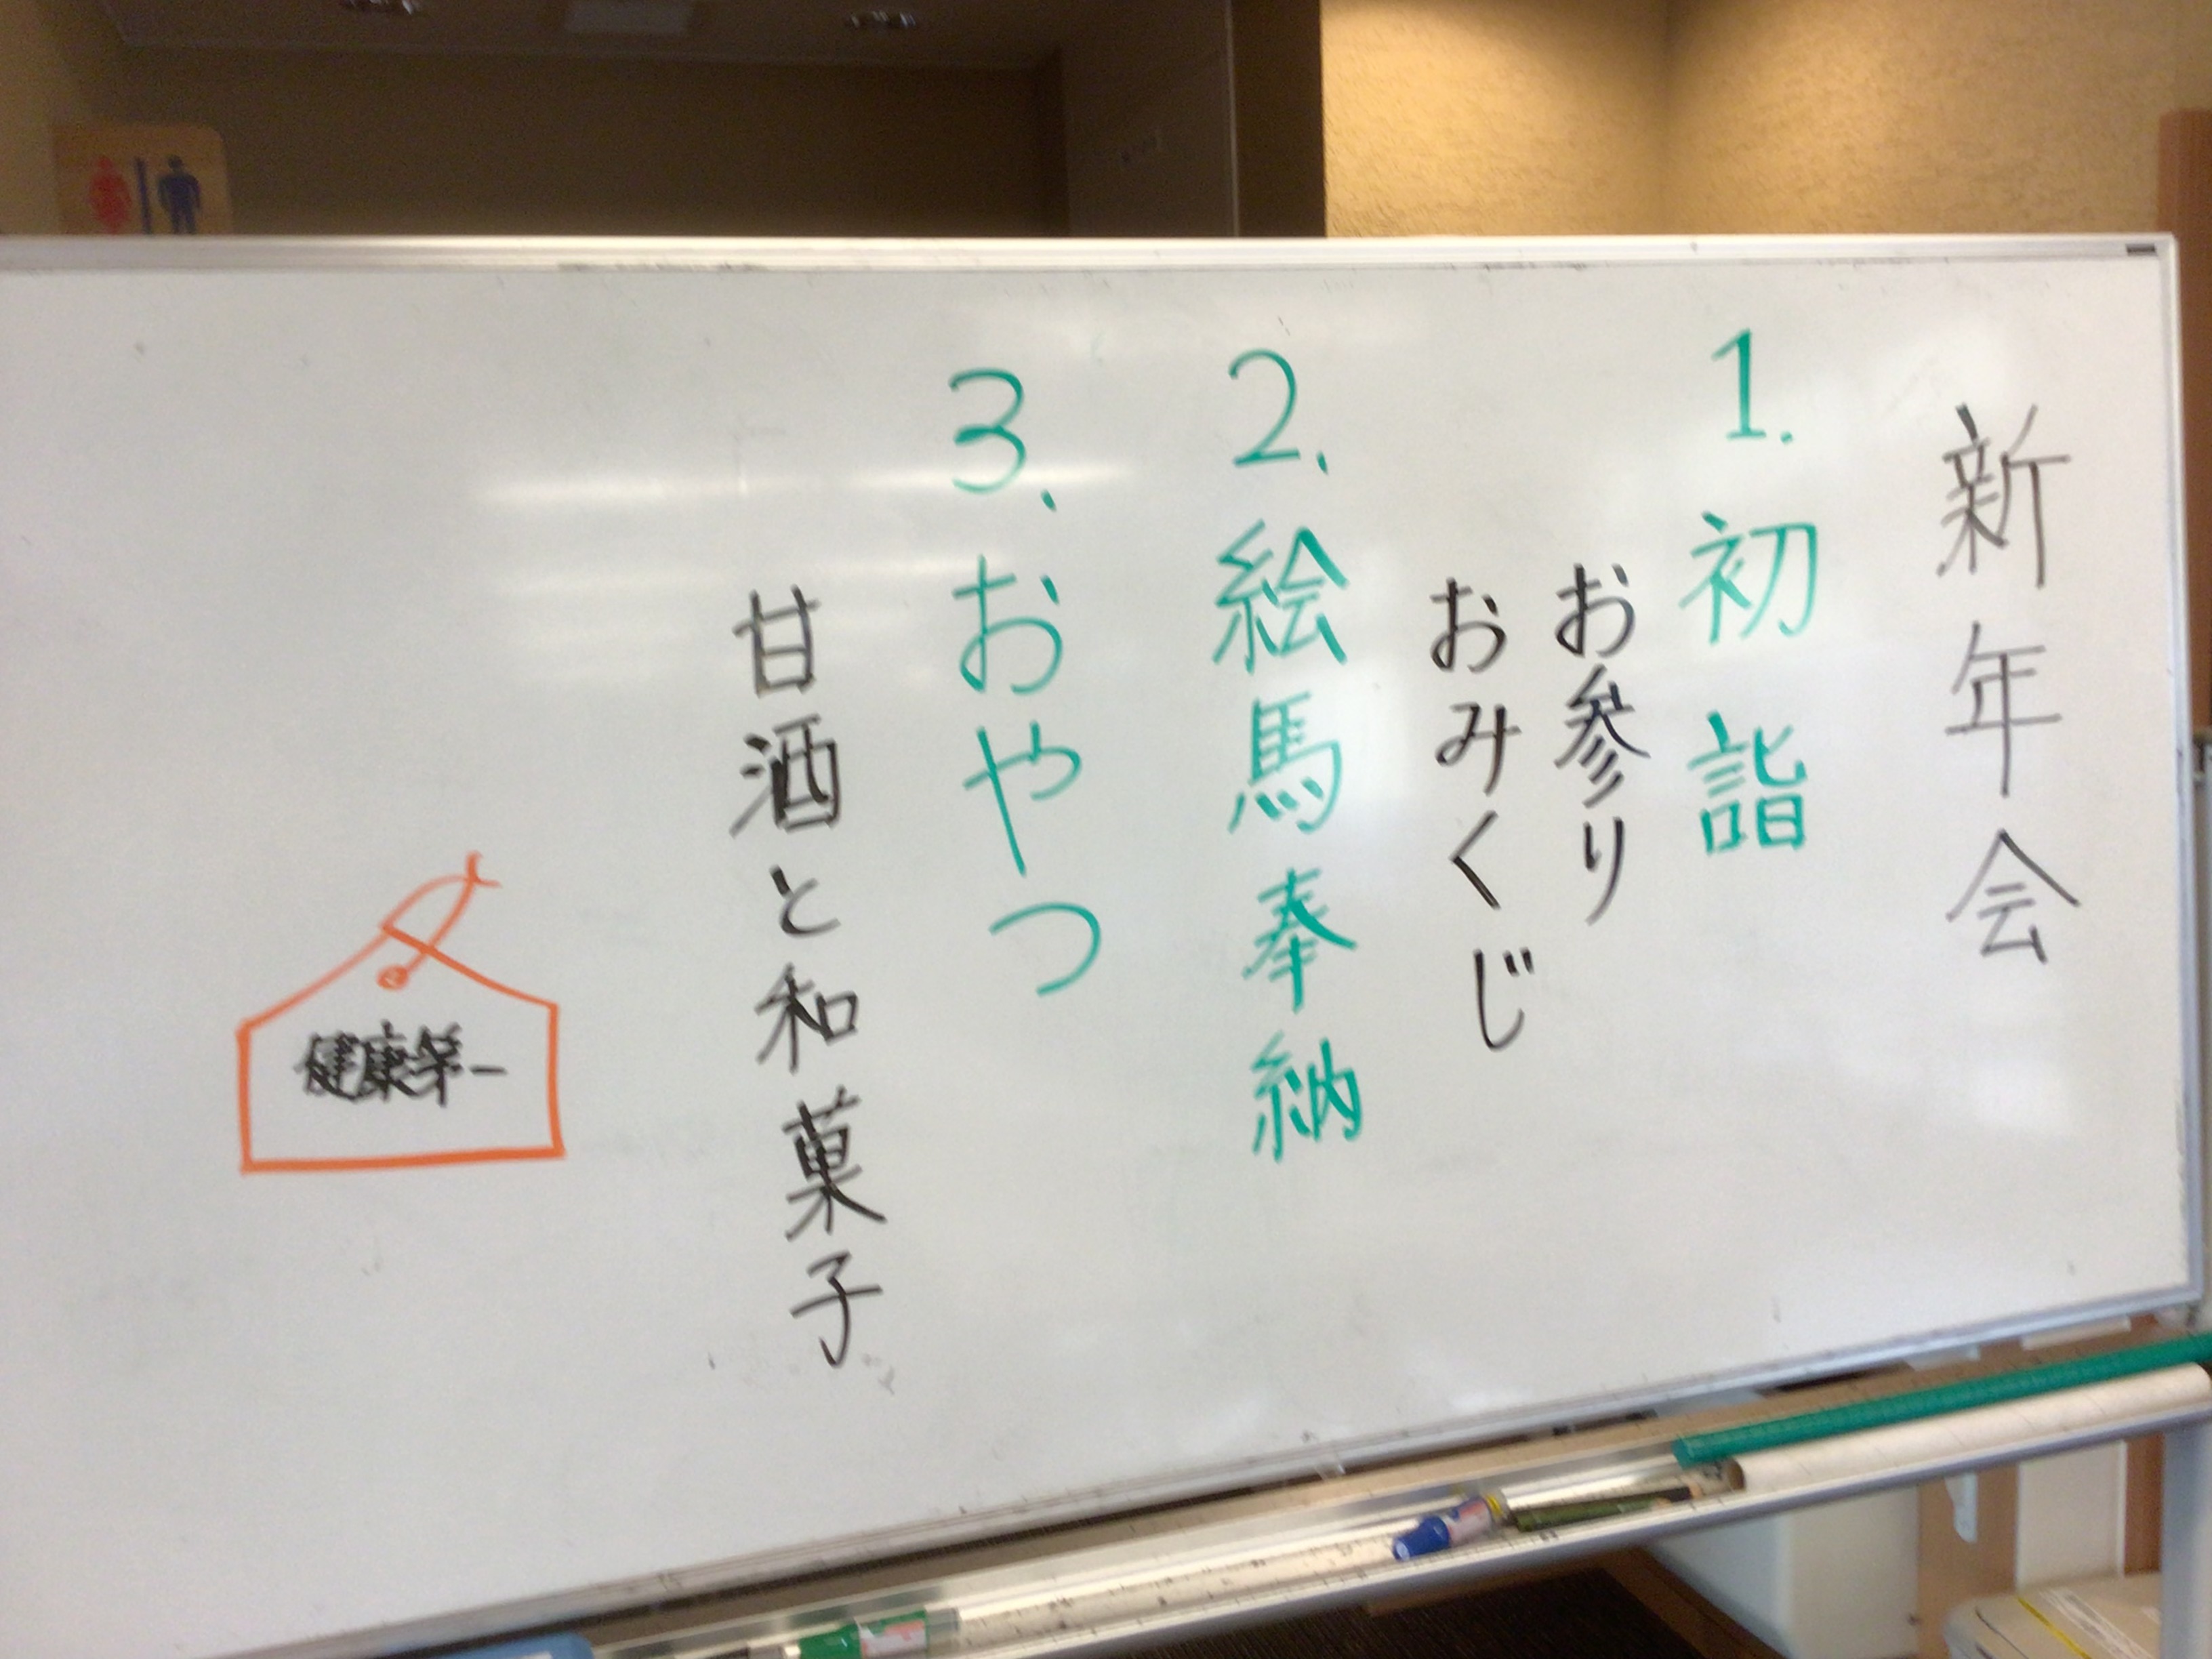 新年会
1.初詣
お参り
おみくじ
2.絵馬奉納
3.おやつ
甘酒と和菓子
健康第一